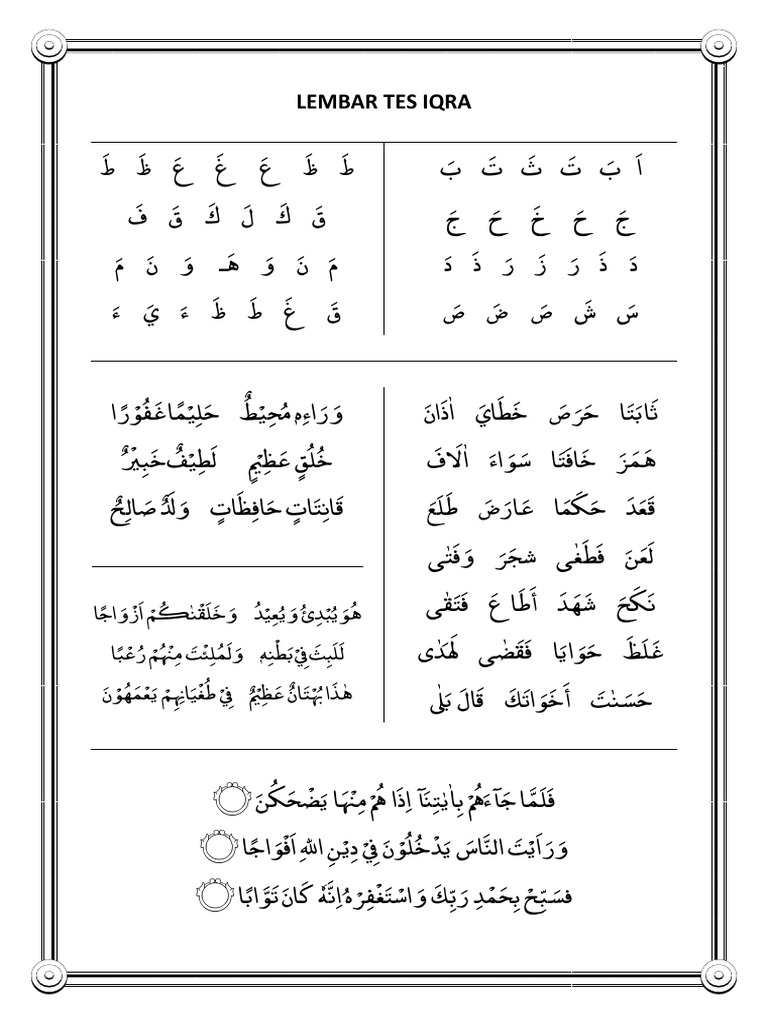 LEMBAR TES IQRA
اَ بَ تَ ثَ تَ بَ
جَ حَ خَ حَ جَ
دَ ذَ رَ زَ رَ ذَ دَ
سَ شَ صَ ضَ صَ
طَ ظَ عَ غَ عَ ظَ طَ
قَ كَ لَ كَ قَ فَ
مَ نَ وَ هَـ وَ نَ مَ
قَ غَ طَ ظَ ءَ يَ ءَ
ثَابَتَا حَرَصَ خَطَايَ اٰذَانَ
هَمَزَ خَافَتَا سَوَاءَ اٰلَافَ
قَعَدَ حَكَمَا عَارَضَ طَلَعَ
لَعَنَ فَطَغٰى شجَرَ وَفَتٰى
نَكَحَ شَهَدَ أَطَاعَ فَتَقٰى
غَلَظَ حَوَايَا فَقَضٰى لَهَدٰى
حَسَنٰتَ أَخَوَاتَكَ قَالَ بَلٰى
وَرَاءِهٖ مُحِيْطٌ حَلِيْمًا غَفُوْرًا
خُلُقٍ عَظِيْمٍ لَطِيْفٌ خَبِيْرٌ
قَانِتَاتٍ حَافِظَاتٍ وَلَدٌ صَالِحٌ
هُوَ يُبْدِئُ وَيُعِيْدُ وَخَلَقْنٰكُمْ اَزْوَاجًا
لَلَبِثَ فِيْ بَطْنِهٖ وَلَمُلِئْتَ مِنْهُمْ رُعْبًا
هٰذَا بُهْتَانٌ عَظِيْمٌ فِيْ طُغْيَانِهِمْ يَعْمَهُوْنَ
فَلَمَّا جَآءَهُمْ بِاٰيٰتِنَآ اِذَا هُمْ مِنْهَا يَضْحَكُنَ
وَرَاَيْتَ النَّاسَ يَدْخُلُوْنَ فِيْ دِيْنِ اللهِ اَفْوَاجًا
فسَبِّحْ بِحَمْدِ رَبِّكَ وَاسْتَغْفِرْهُ اِنَّهٗ كَانَ تَوَّابًا